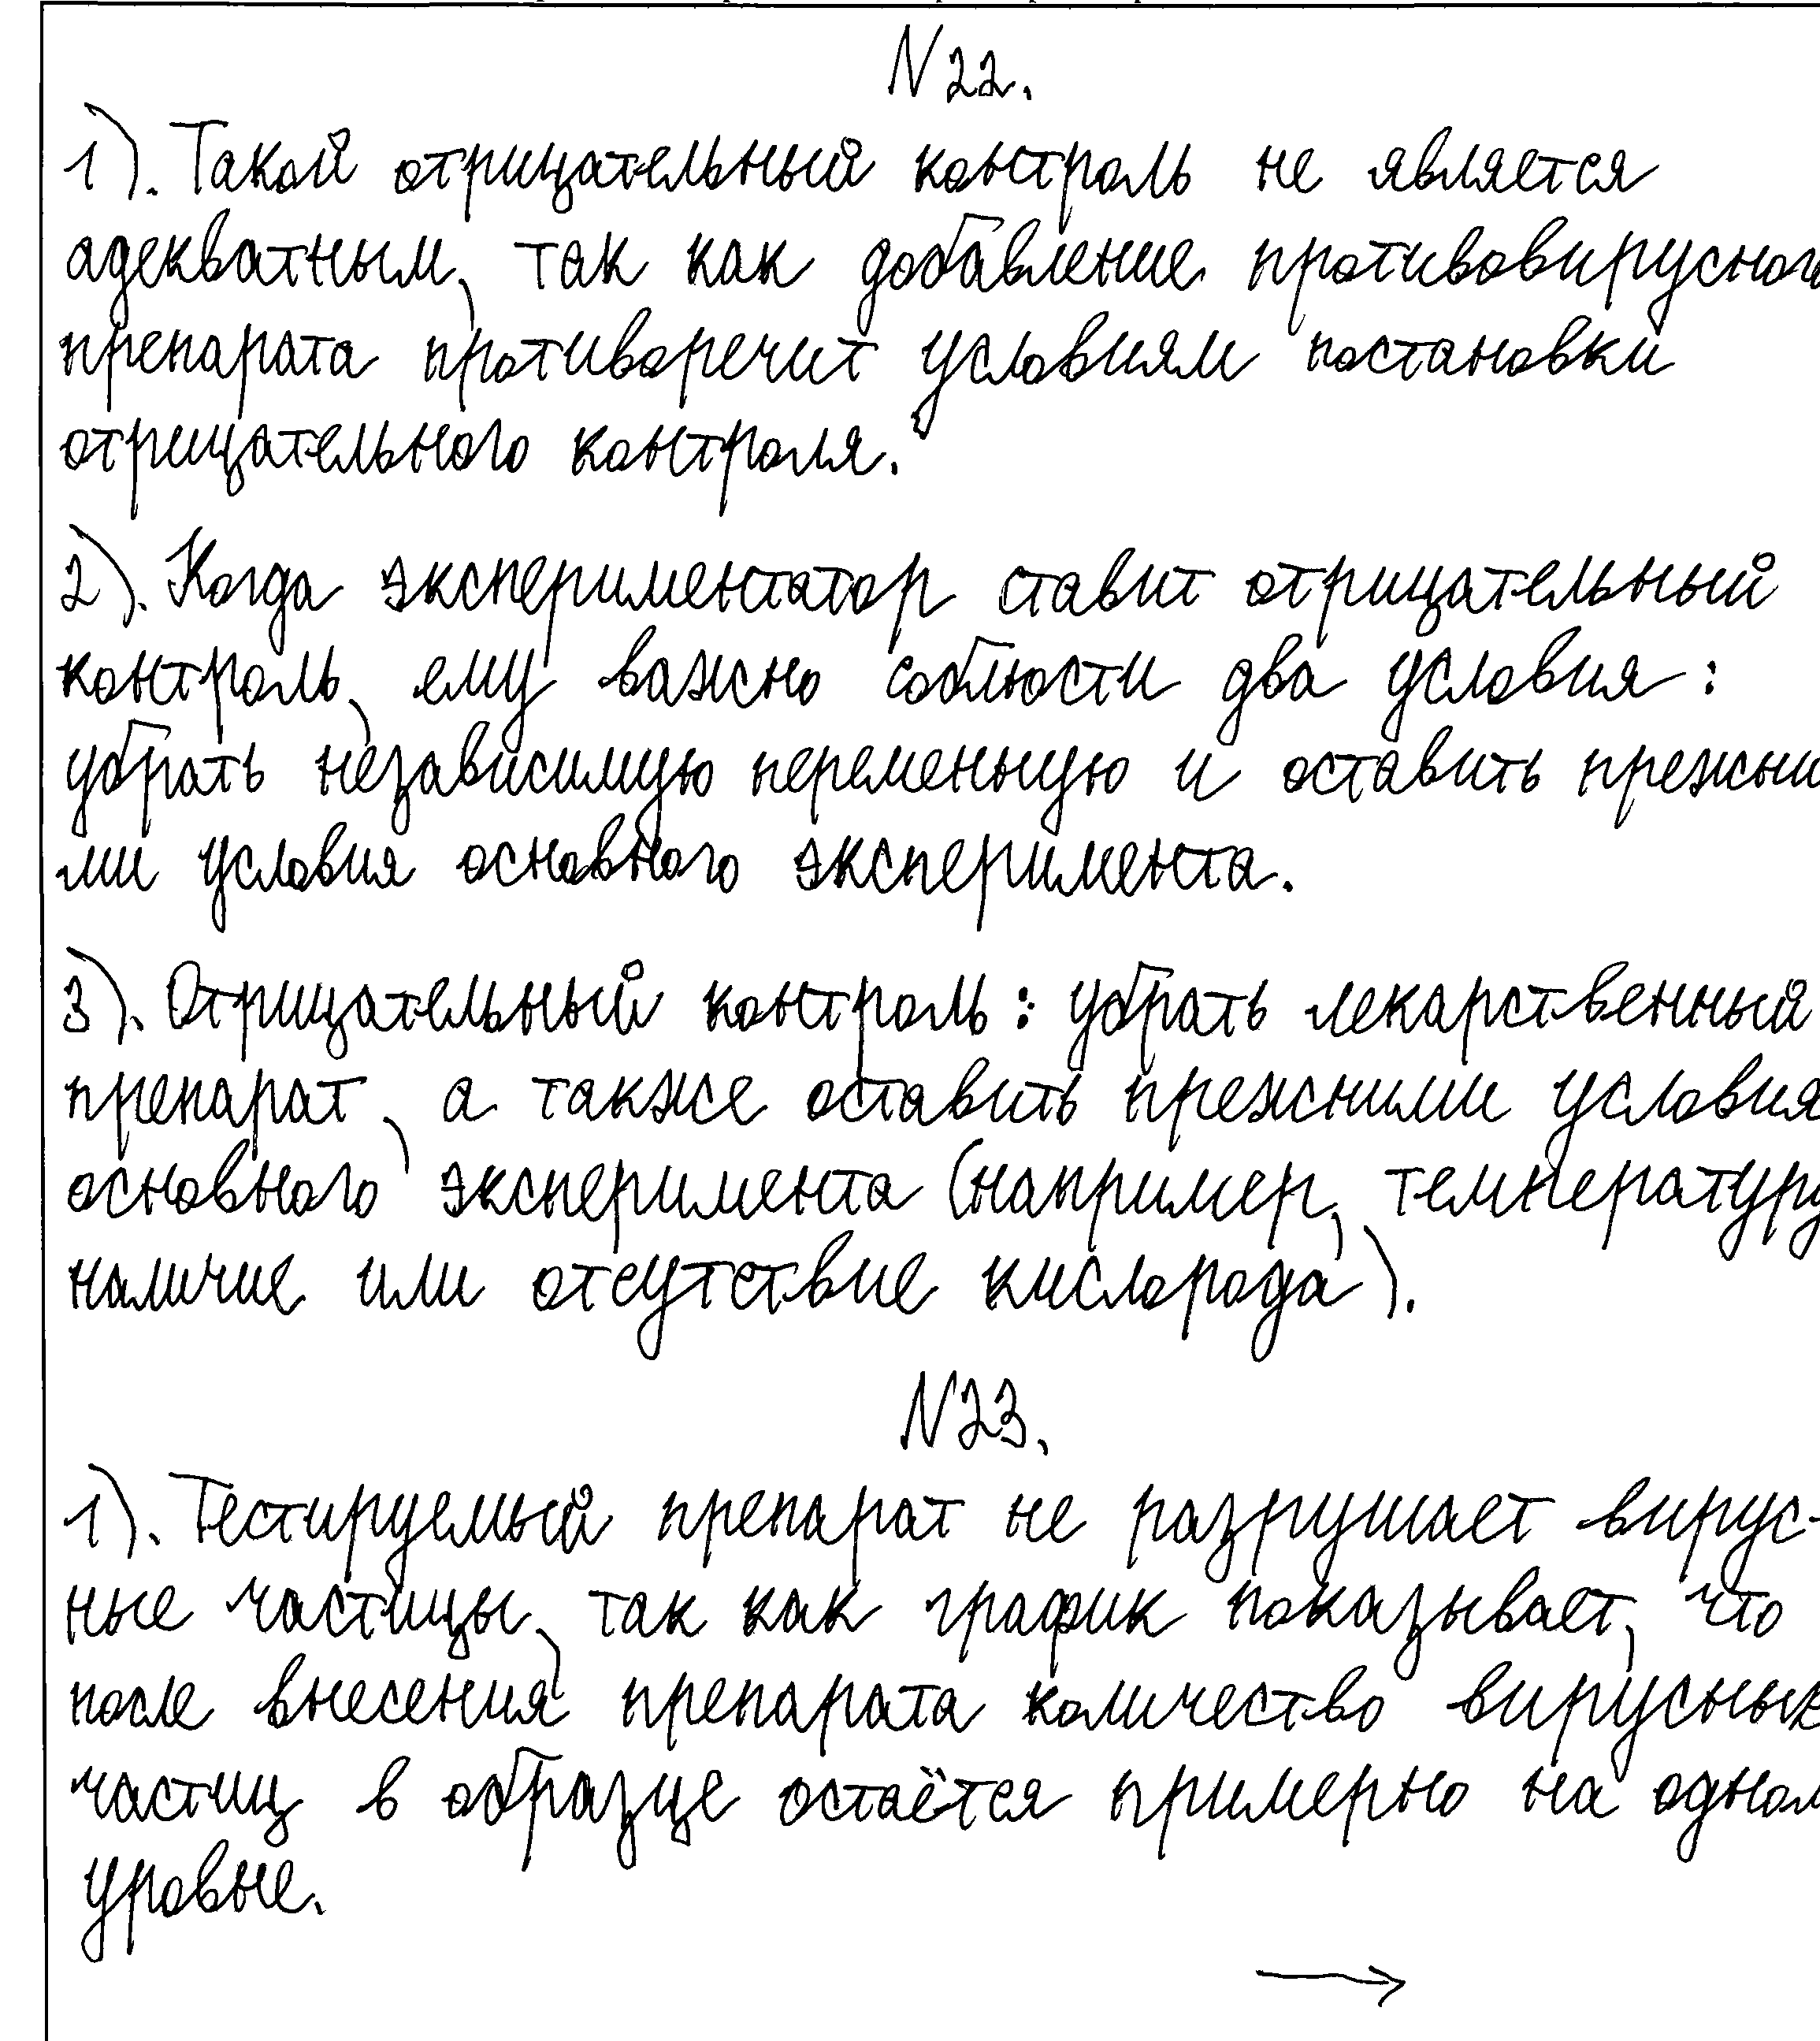 N22.
1). Такой отрицательный контроль не является
адекватным, так как добавление противовирусного
препарата противоречит условиям постановки
отрицательного контроля.
2). Когда экспериментатор ставит отрицательный
контроль, ему важно соблюсти два условия:
убрать независимую переменную и оставить прежни
ми условия основного эксперимента.
3). Отрицательный контроль: убрать лекарственный
препарат, а также оставить прежними условия
основного эксперимента (например, температуру,
наличие или отсутствие кислорода).
N23.
1). Тестируемый препарат не разрушает вирус-
ные частицы, так как график показывает, что
после внесения препарата количество вирусных
частиц в образце остаётся примерно на одном
уровне.